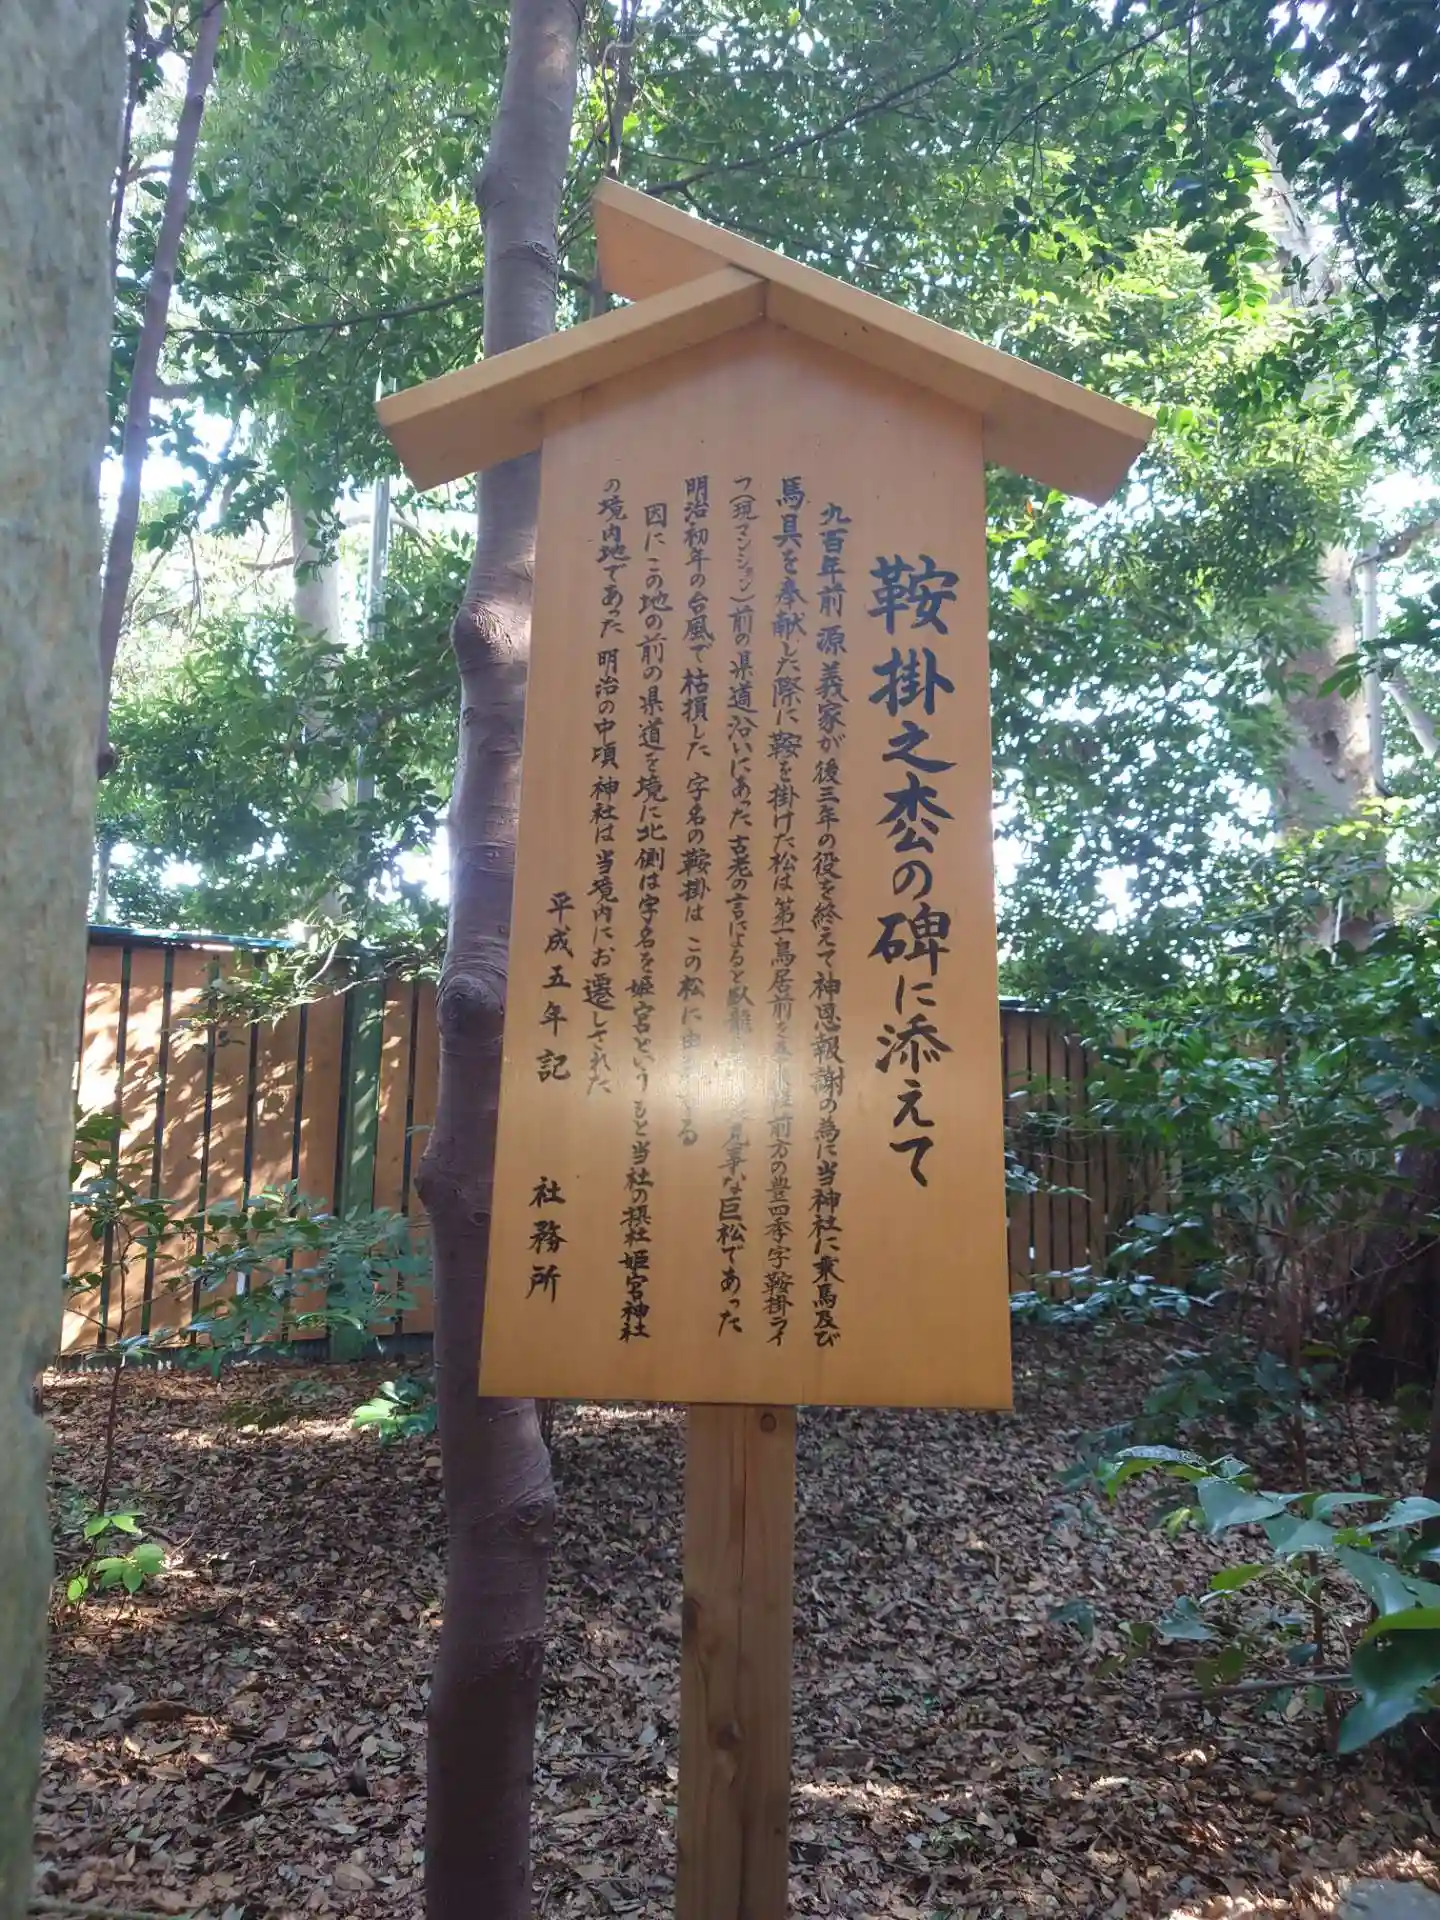 鞍掛之枩の碑に添えて
九百年前 源義家が後三年の役を終えて神恩報謝の為に当神社に乗馬及び
馬具を奉献した際に鞍を掛けた松は第一鳥居前を 前方の豊四季字鞍掛ライ
フ(現マンション)前の県道沿いにあった 古老の言によると臥龍 見事な巨松であった
明治初年の台風で枯損した 字名の鞍掛は この松に由 る
因にこの地の前の県道を境に北側は字名を姫宮という もと当社の摂社姫宮神社
の境内地であった 明治の中頃 神社は当境内にお遷しされた
平成五年記 社務所